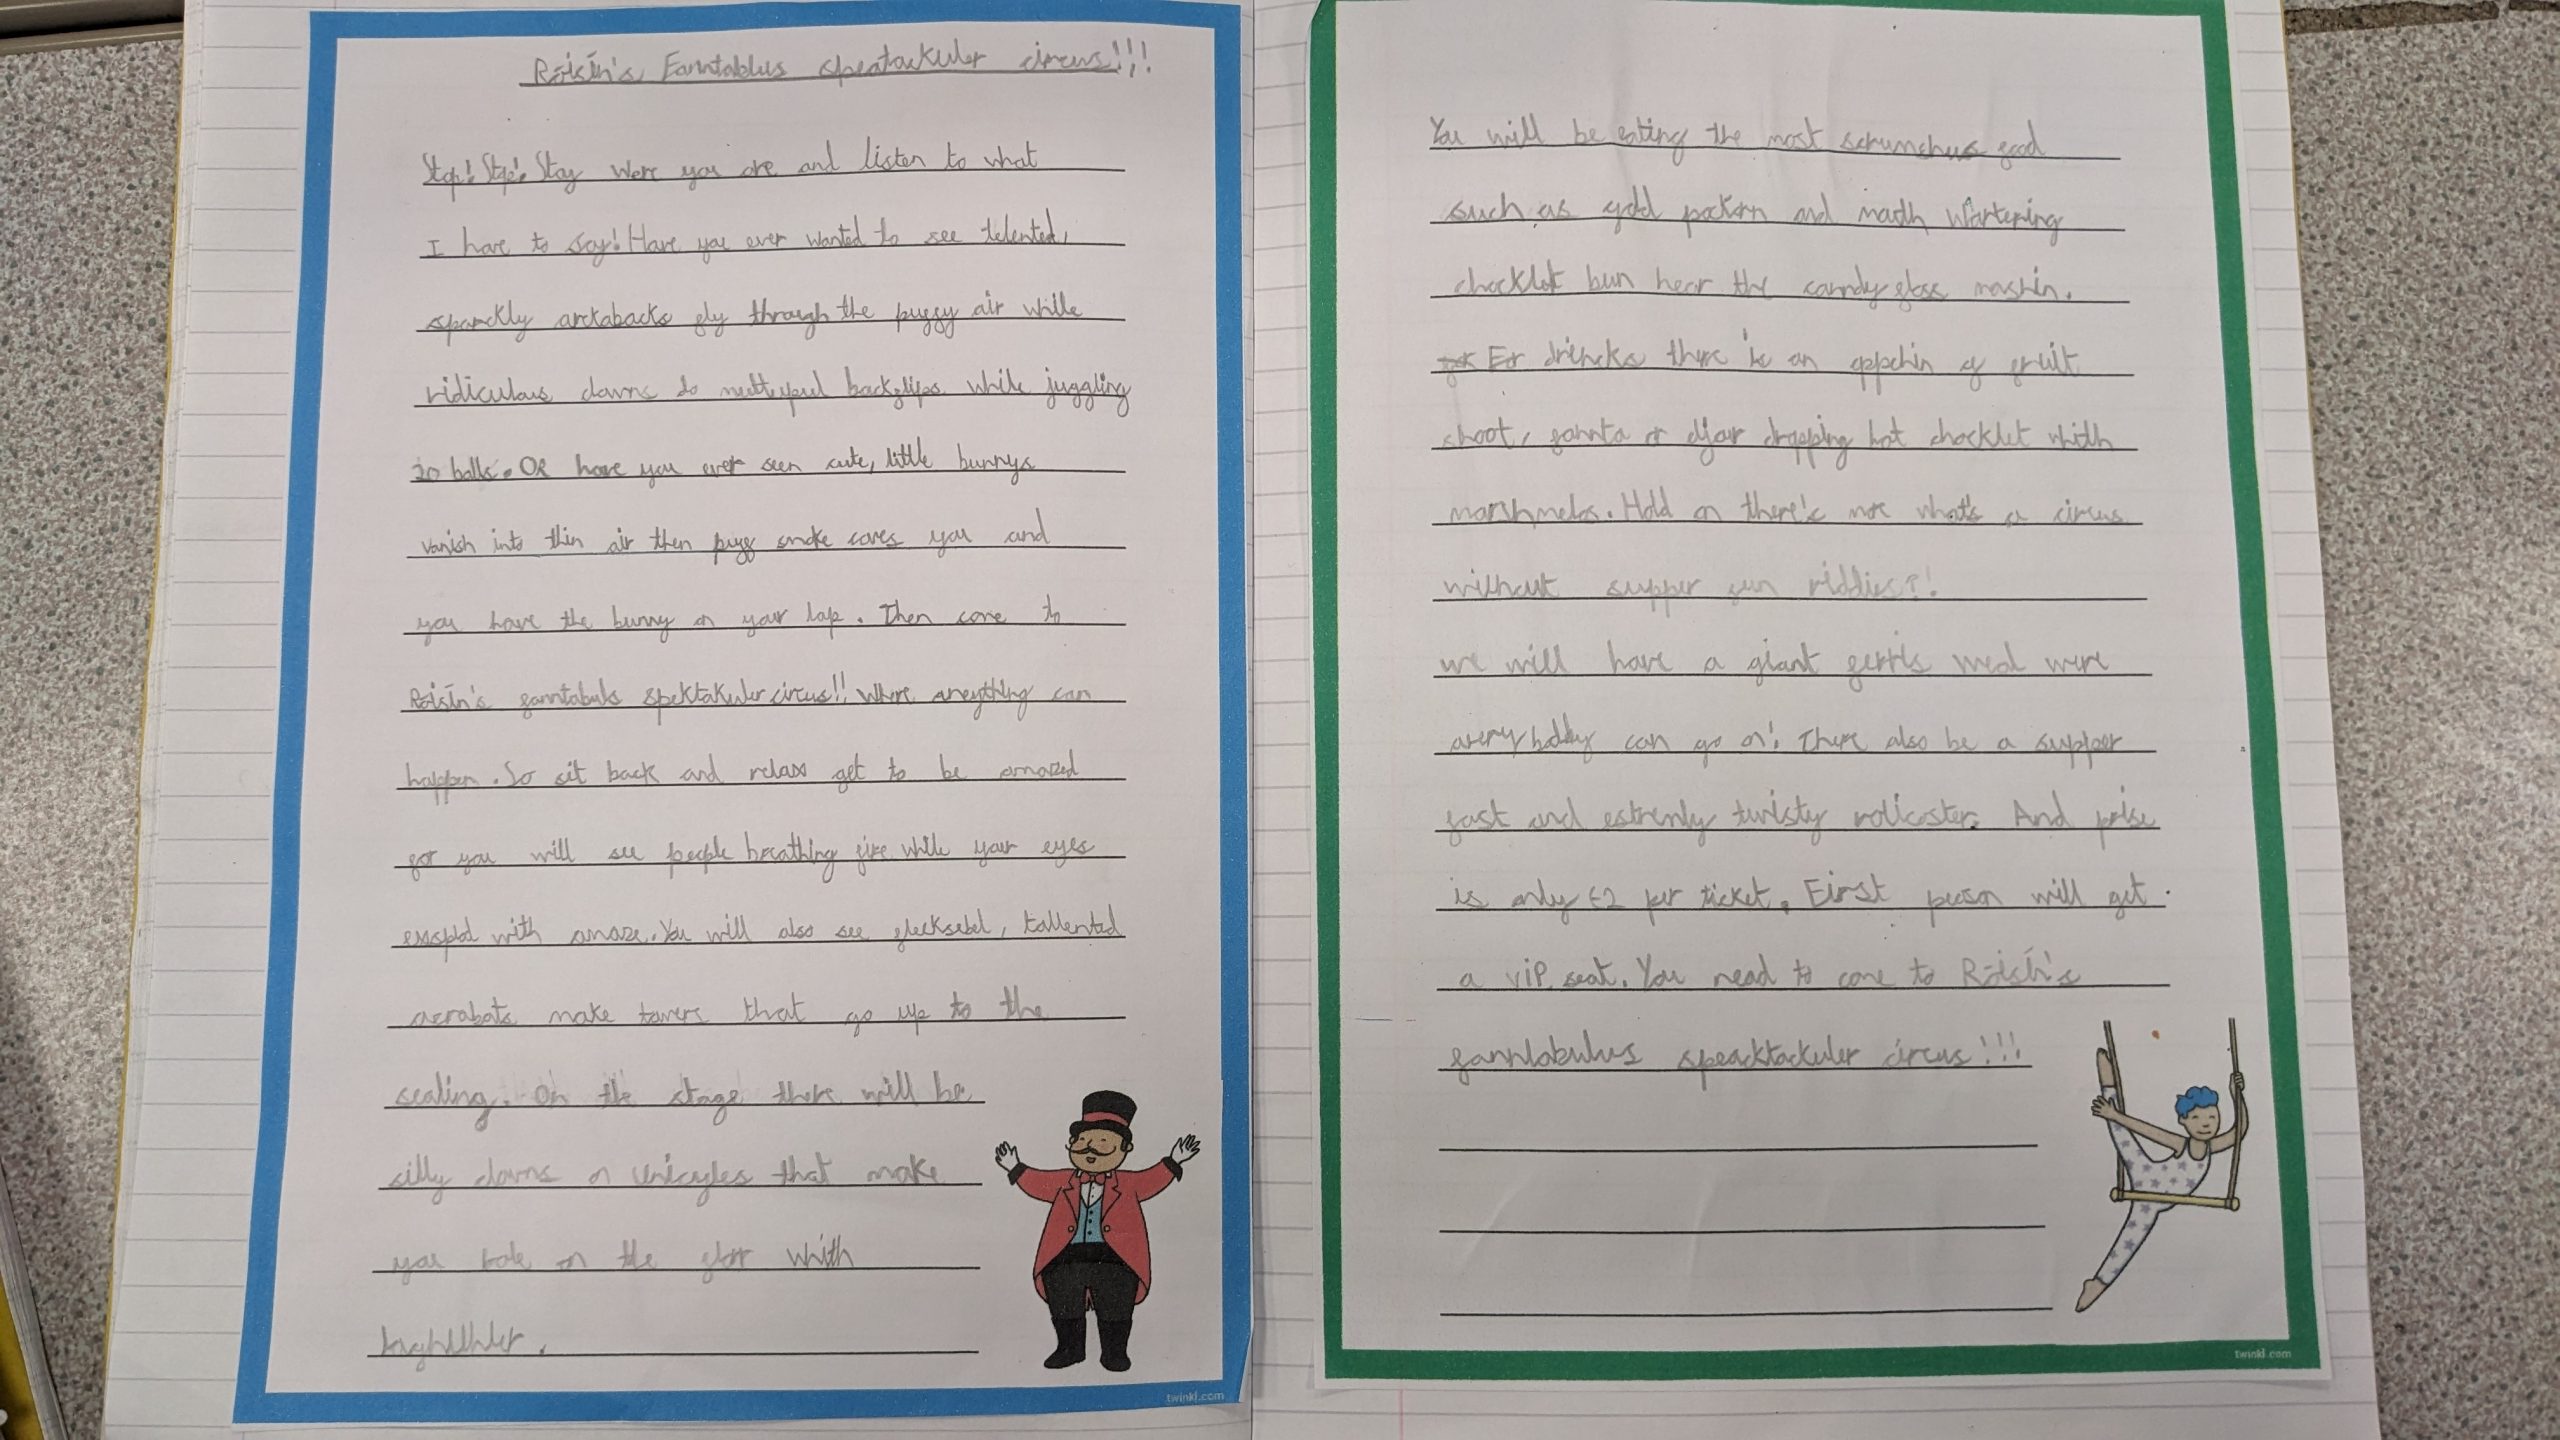 Róisín's Fanntablus speatackuler circus!!!
Stop! Stop! Stay were you are and listen to what
I have to say! Have you ever wanted to see telented,
sparckly arctabacks fly through the puffy air while
ridiculous clowns do multeypul backflips while juggling
20 balls. OR have you ever seen cute, little bunnys
vanish into thin air then puff smoke coves you and
you have the bunny on your lap. Then come to
Róisín's fanntabuls spektakuler circus!! Where aneything can
happen. So sit back and relax get to be amazed
for you will see people breathing fire while your eyes
with amaze. You will also see flecksebel, tallented
acrobats make towers that go up to the
sealing. On the stage there will be
silly clowns on unicyles that make
you role on the flor whith
You will be eating the most scrumchus food
such as gold pockorn and mouth
chocklet bun near the candy floss mashin.
For drincks there is an oppchin of fruit
shoot, fannta or dropping hot chocklet whith
marshmelos. Hold on there's more what's a circus
without supper fun riddies?!
we will have a giant ferris were
can go on! There also be a supper
fast and estremly twisty rollcoster. And prise
is only £2 per ticket. First person will get
a VIP seat. You need to come to Róisín's
fanntabulus speacktackuler circus!!!
twinkl.com
twinkl.com